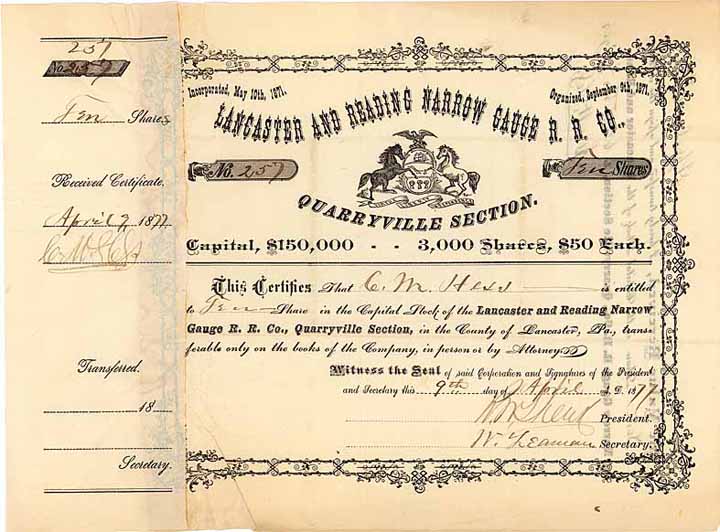 257
No. 257
Ten Shares
Received Certificate.
April 9 1877
C. M. Hess
Transferred.
18
Secretary.
Incorporated, May 10th, 1871.
Organized, September 9th, 1871.
LANCASTER AND READING NARROW GAUGE R. R. CO.,
No. 257
Ten Shares
QUARRYVILLE SECTION.
Capital, $150,000 - - 3,000 Shares, $50 Each.
This Certifies That C. M. Hess is entitled
to Ten Share in the Capital Stock of the Lancaster and Reading Narrow
Gauge R. R. Co., Quarryville Section, in the County of Lancaster, Pa., trans-
ferable only on the books of the Company, in person or by Attorney
Witness the Seal of said Corporation and Signatures of the President
and Secretary this 9th day of April A. D. 1877
President.
W. Leaman Secretary.